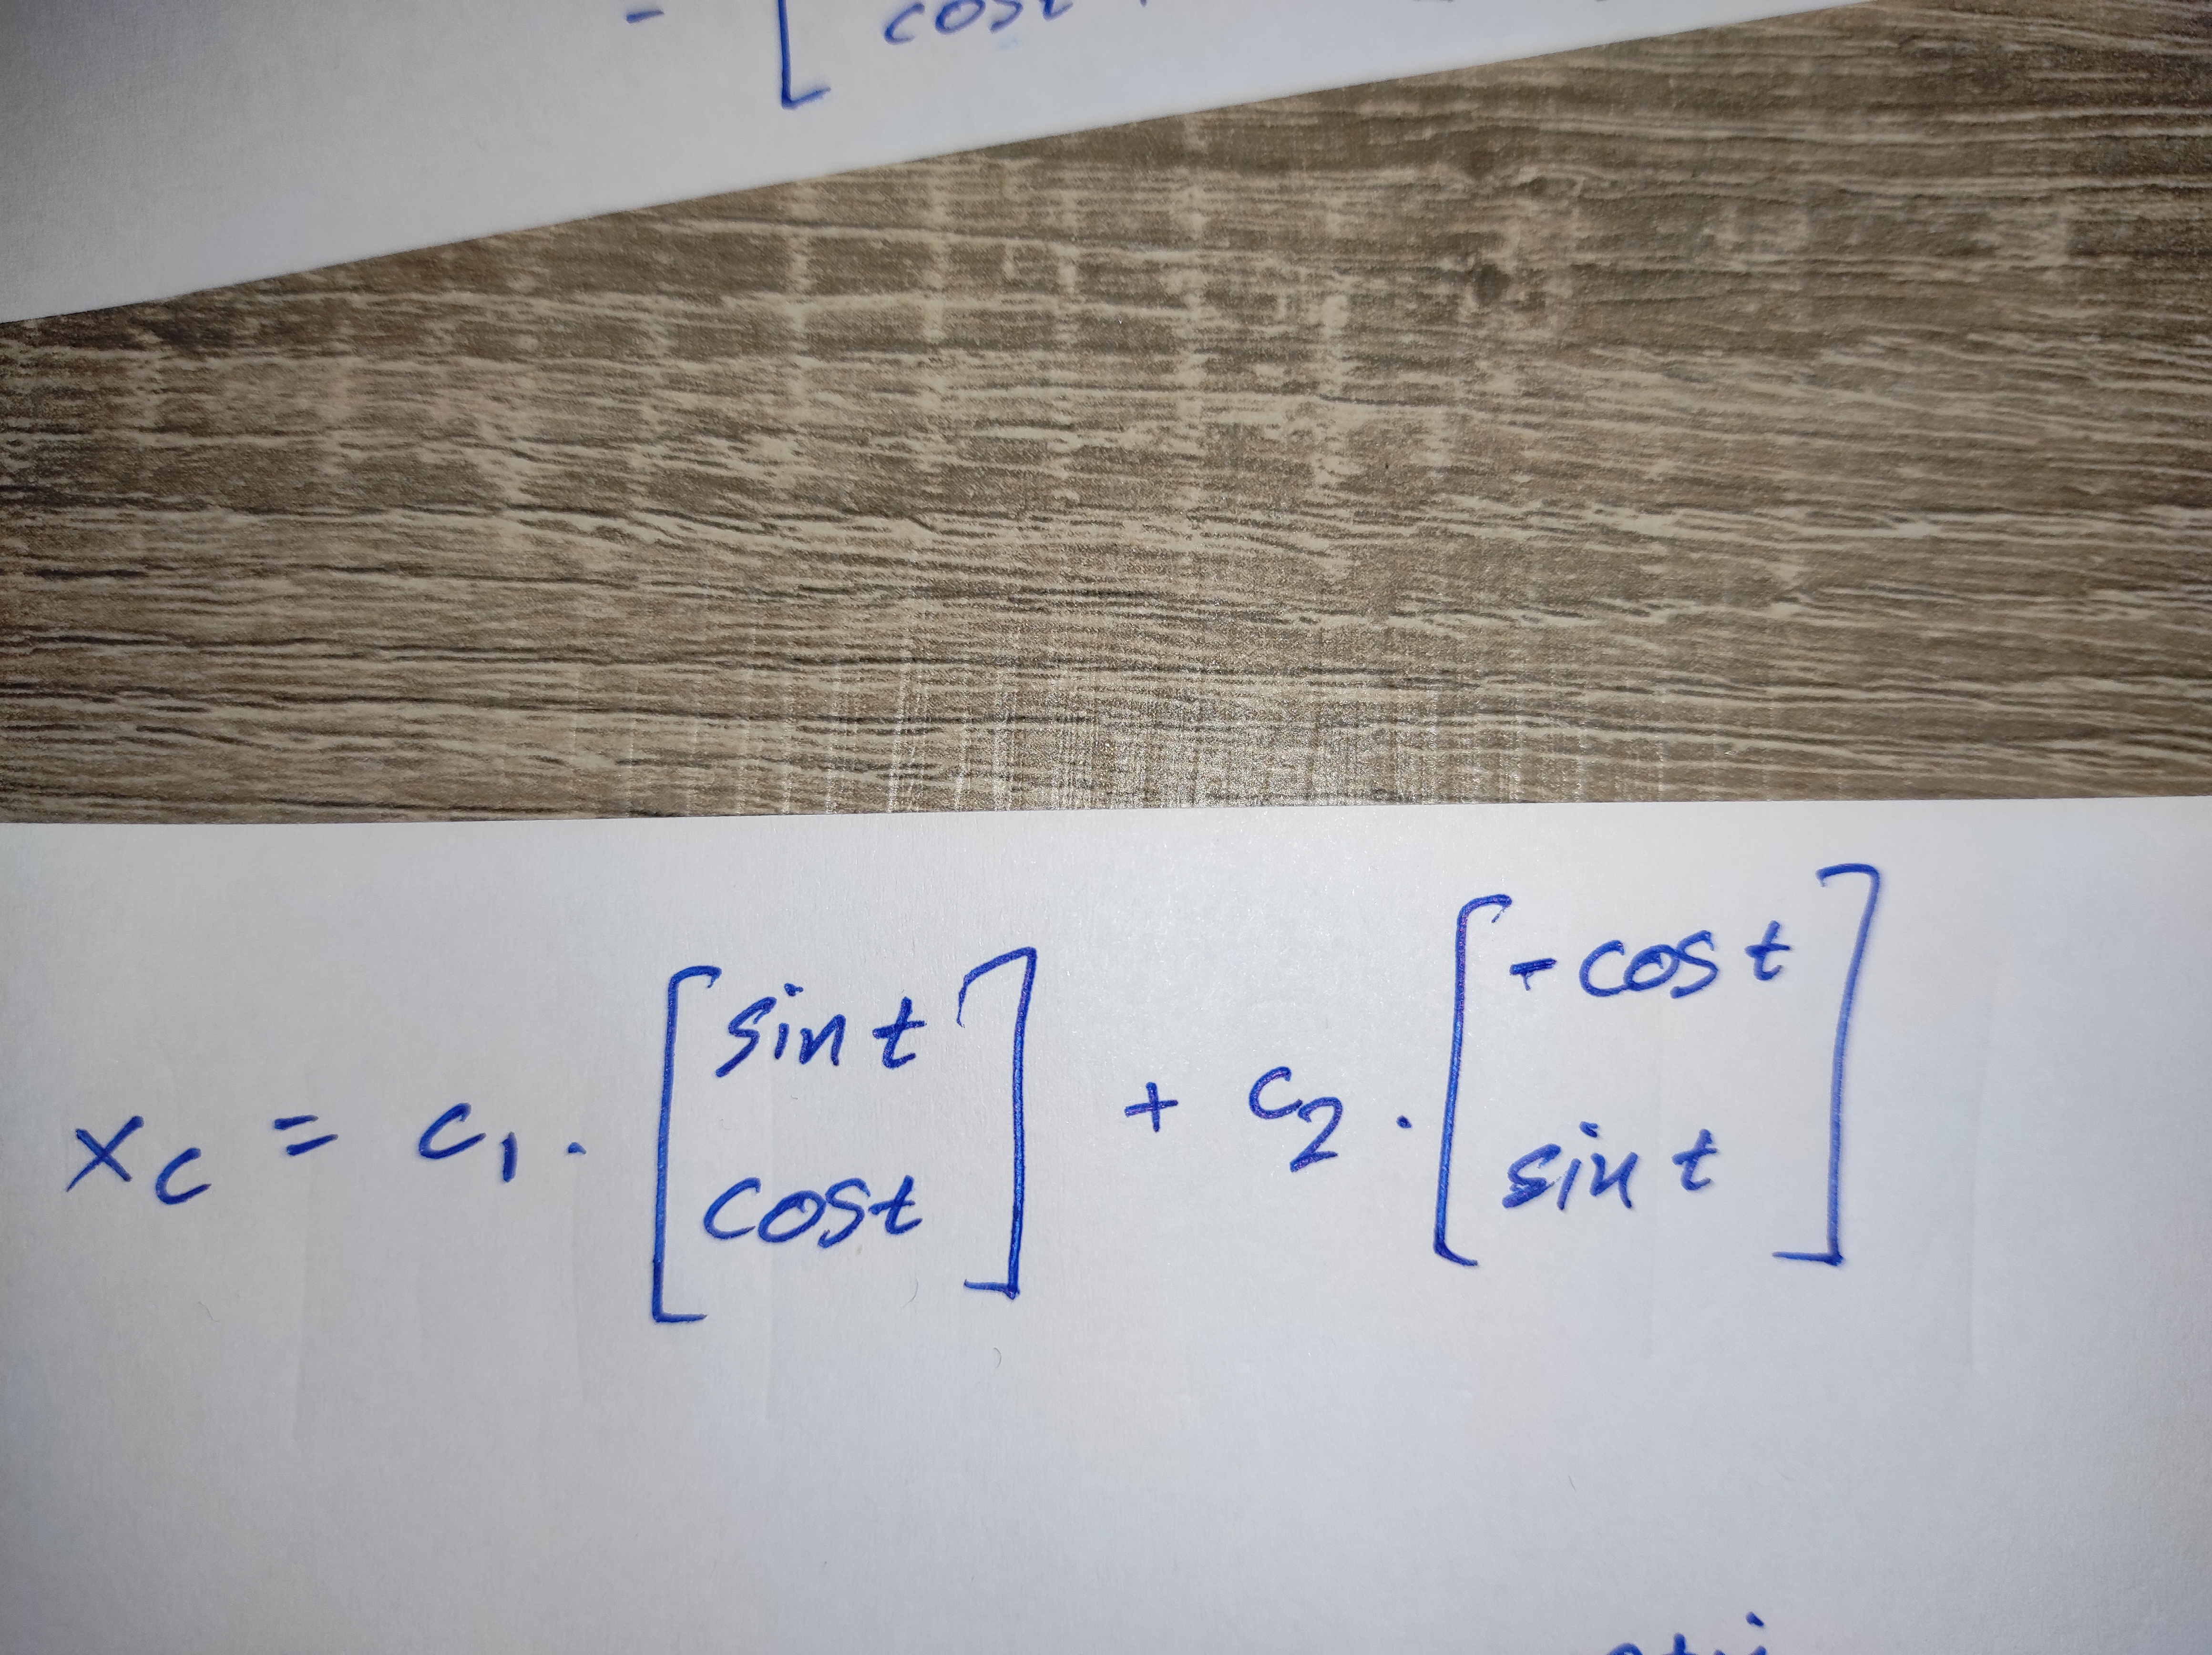 - [ cost
x_c = c_1 · [ sin t   cost ] + c_2 · [ - cos t   sin t ]